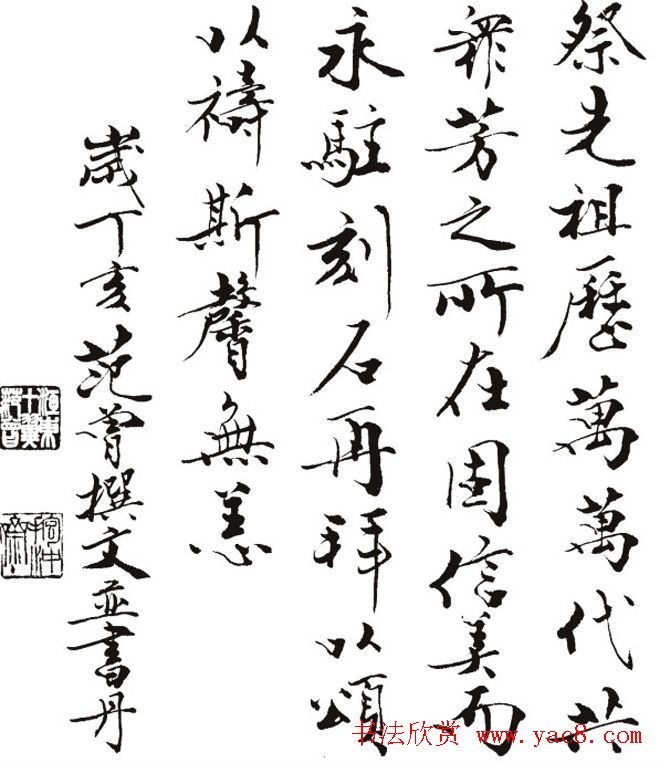 祭先祖歷萬萬代共
眾芳之所在固信美而
永駐刻石再拜以頌
以禱斯馨無恙
歲丁亥范曾撰文並書丹
江東十翼范曾
抱沖齋
书法欣赏 www.yac8.com